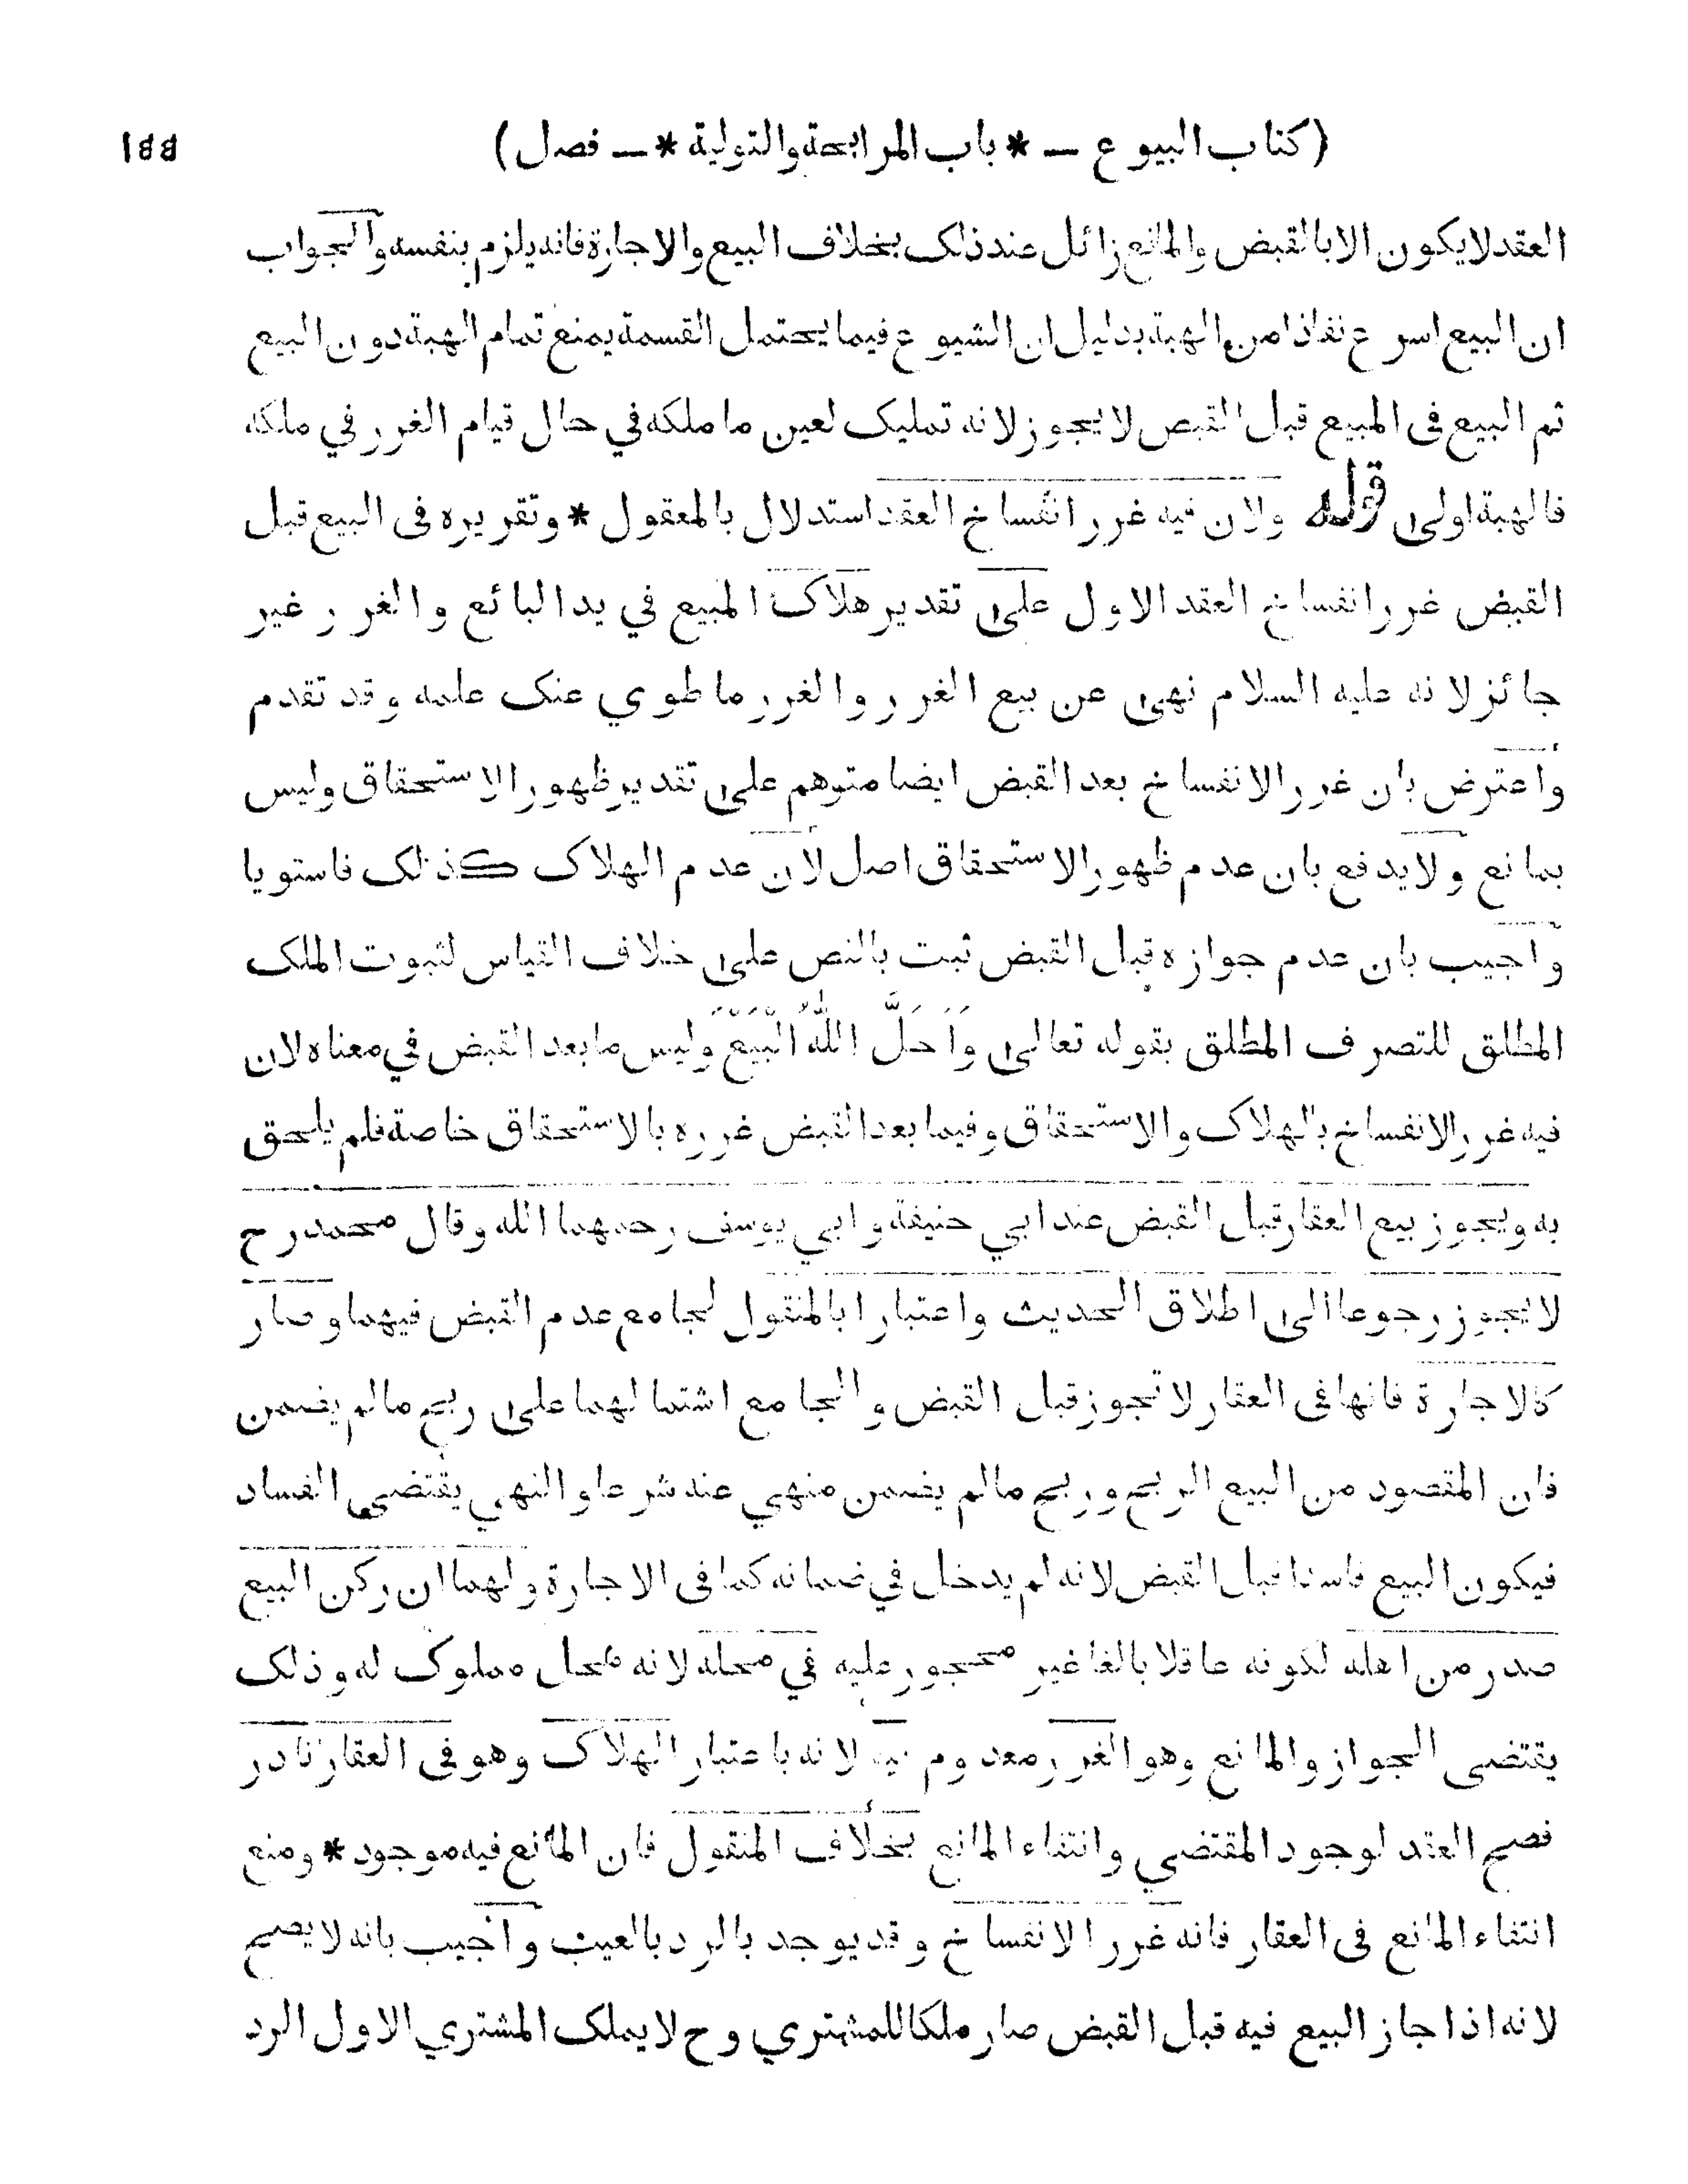 (كتاب البيوع — * باب المرابحة والتولية * — فصل)
العقد لا يكون الا بالقبض والمانع زائل عند ذلك بخلاف البيع والاجارة فانه يلزم بنفسه والجواب
ان البيع اسرع نفاذا من الهبة بدليل ان الشيوع فيما يحتمل القسمة يمنع تمام الهبة دون البيع
ثم البيع فى المبيع قبل القبض لا يجوز لانه تمليك لعين ما ملكه في حال قيام الغرر في ملكه
فالهبة اولى قوله ولان فيه غرر انفساخ العقد استدلال بالمعقول * وتقريره فى البيع قبل
القبض غرر انفساخ العقد الاول على تقدير هلاك المبيع في يد البائع والغرر غير
جائز لانه عليه السلام نهى عن بيع الغرر والغرر ما طوي عنك علمه وقد تقدم
واعترض بان غرر الانفساخ بعد القبض ايضا متوهم على تقدير ظهور الاستحقاق وليس
بمانع ولا يدفع بان عدم ظهور الاستحقاق اصل لان عدم الهلاك كذلك فاستويا
واجيب بان عدم جوازه قبل القبض ثبت بالنص على خلاف القياس لثبوت الملك
المطلق للتصرف المطلق بقوله تعالى وَاَحَلَّ اللّٰهُ الْبَيْعَ وليس ما بعد القبض في معناه لان
فيه غرر الانفساخ بالهلاك والاستحقاق وفيما بعد القبض غرره بالاستحقاق خاصة فلم يلحق
به ويجوز بيع العقار قبل القبض عند ابي حنيفة وابي يوسف رحمهما الله وقال محمد رح
لا يجوز رجوعا الى اطلاق الحديث واعتبارا بالمنقول لجامع عدم القبض فيهما وصار
كالاجارة فانها فى العقار لا تجوز قبل القبض والجامع اشتمالهما على ربح مالم يضمن
فان المقصود من البيع الربح وربح مالم يضمن منهي عنه شرعا والنهي يقتضى الفساد
فيكون البيع فاسدا قبل القبض لانه لم يدخل في ضمانه كما فى الاجارة ولهما ان ركن البيع
صدر من اهله لكونه عاقلا بالغا غير محجور عليه في محله لانه محل مملوك له وذلك
يقتضى الجواز والمانع وهو الغرر معدوم فيه لانه باعتبار الهلاك وهو فى العقار نادر
فصح العقد لوجود المقتضي وانتفاء المانع بخلاف المنقول فان المانع فيه موجود * ومنع
انتفاء المانع فى العقار فانه غرر الانفساخ وقد يوجد بالرد بالعيب واجيب بانه لا يصح
لانه اذا جاز البيع فيه قبل القبض صار ملكا للمشتري وح لا يملك المشتري الاول الرد